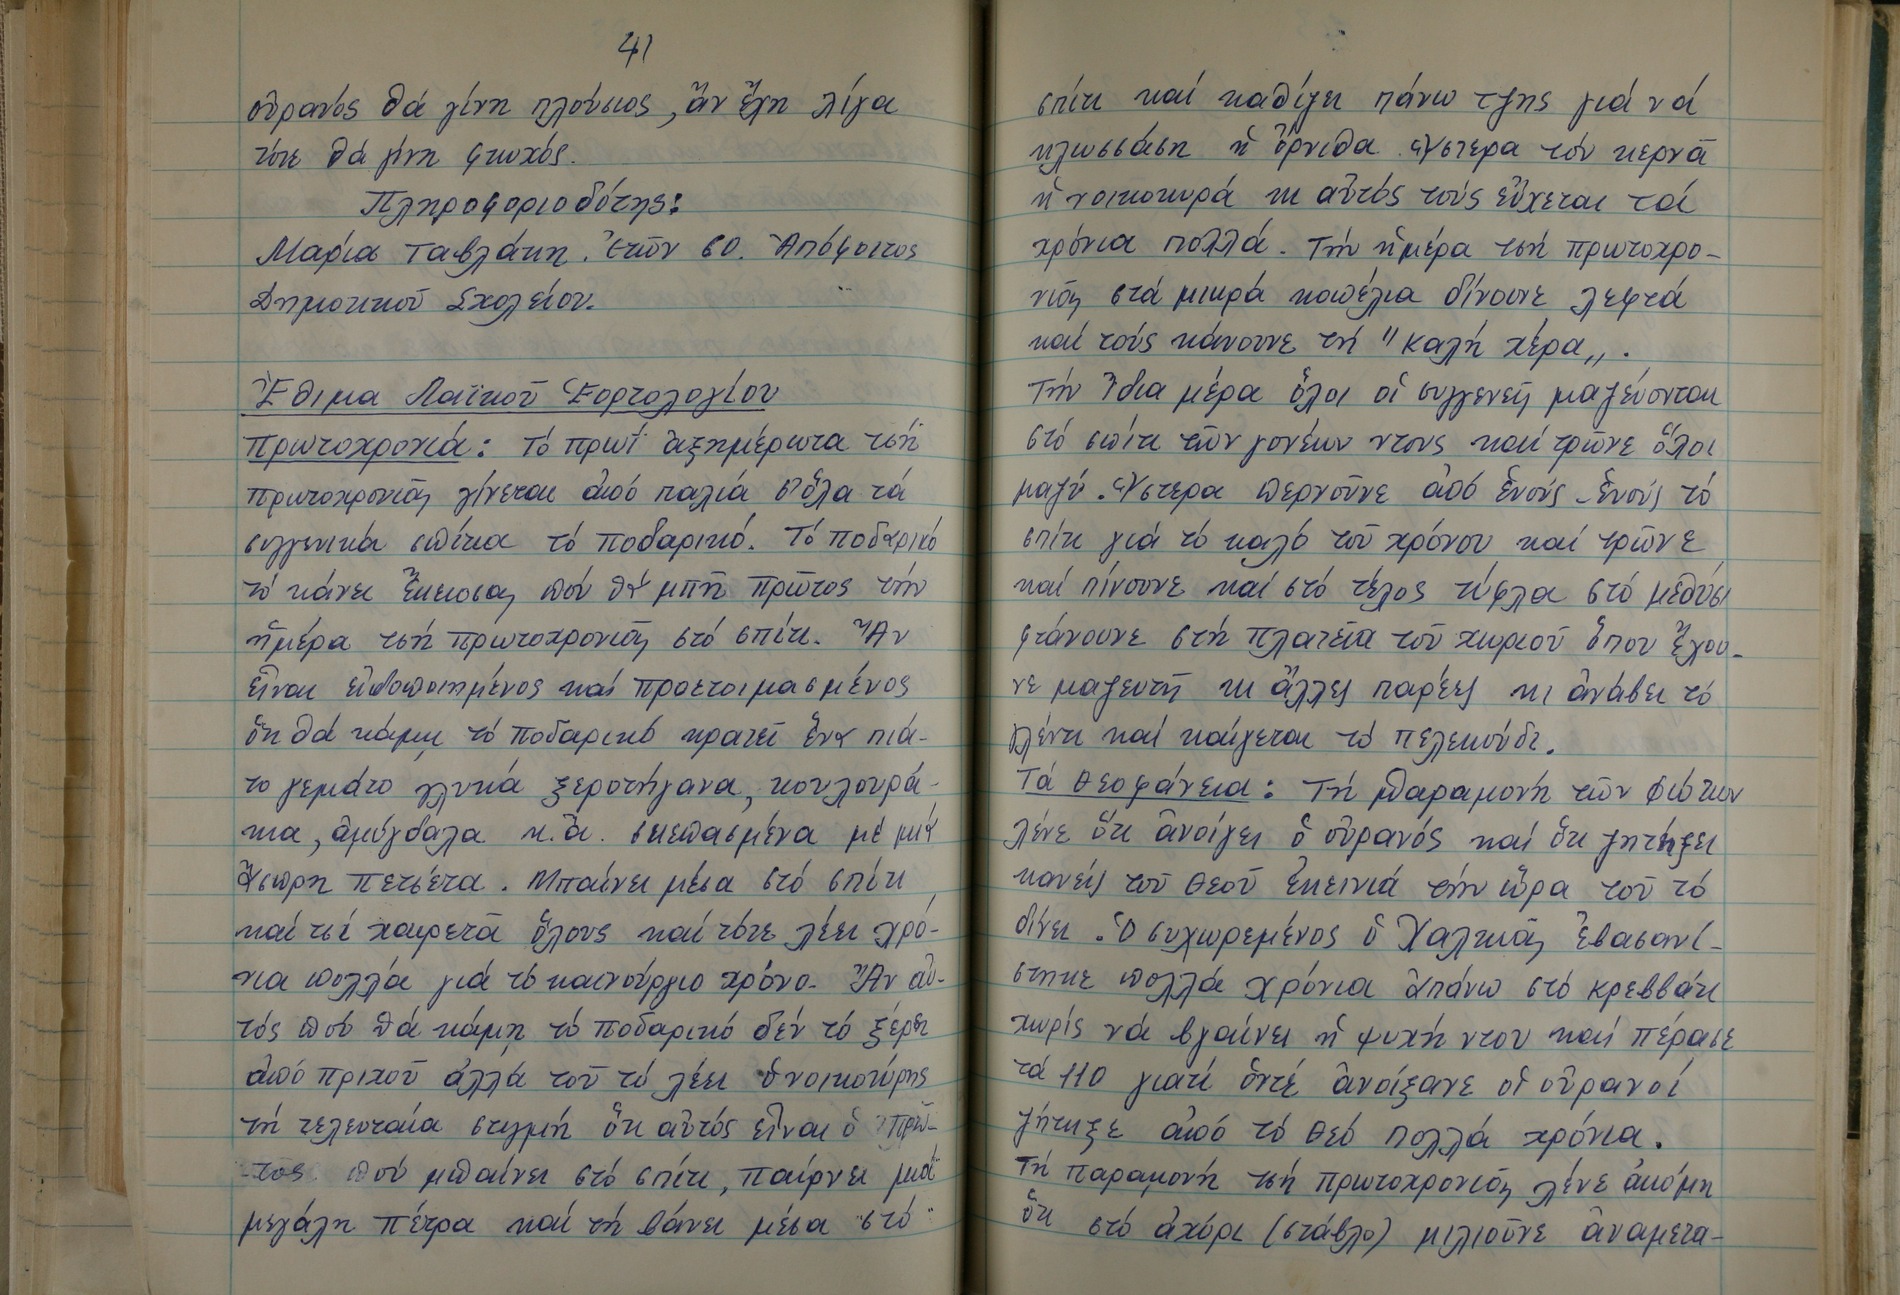 41
οὐρανός θά γίνη πλούσιος, ἄν ἔχη λίγα
τότε θά γίνη φτωχός.
Πληροφοριοδότης:
Μαρία Ταβλάκη. Ἐτῶν 60. Ἀπόφοιτος
Δημοτικοῦ Σχολείου.
Ἔθιμα Λαϊκοῦ Ἑορτολογίου
Πρωτοχρονιά: Τό πρωΐ ἀξημέρωτα τσή
πρωτοχρονιᾶς γίνεται ἀπό παλιά σ' ὅλα τά
συγγενικά σπίτια τό ποδαρικό. Τό ποδαρικό
τό κάνει ἕκειοσας πού θά μπῆ πρῶτος τήν
ἡμέρα τσή πρωτοχρονιᾶς στό σπίτι. Ἄν
εἶναι εἰδοποιημένος καί προετοιμασμένος
ὅτι θά κάμη τό ποδαρικό κρατεῖ ἕνα πιά-
το γεμάτο γλυκά ξεροτήγανα, κουλουρά-
κια, ἀμύγδαλα κ.ἄ. σκεπασμένα μέ μιά
ἄσπρη πετσέτα. Μπαίνει μέσα στό σπίτι
καί τσί χαιρετᾶ ὅλους καί τότε λέει χρό-
νια πολλά γιά τό καινούργιο χρόνο. Ἄν αὐ-
τός πού θά κάμη τό ποδαρικό δέν τό ξέρει
ἀπό πριχοῦ ἀλλά τοῦ τό λέει ὁ νοικοκύρης
τή τελευταία στιγμή ὅτι αὐτός εἶναι ὁ πρῶ-
τος πού μπαίνει στό σπίτι, παίρνει μιά
μεγάλη πέτρα καί τή βάνει μέσα στό
σπίτι καί καθίζει πάνω τζης γιά νά
κλωσσάση ἡ ὄρνιθα. Ὕστερα τόν κερνᾶ
ἡ νοικοκυρά κι αὐτός τούς εὔχεται τά
χρόνια πολλά. Τήν ἡμέρα τσή πρωτοχρο-
νιᾶς στά μικρά κοπέλια δίνουνε λεφτά
καί τούς κάνουνε τή "καλή χέρα„.
Τήν ἴδια μέρα ὅλοι οἱ συγγενεῖς μαζεύονται
στό σπίτι τῶν γονέων ντους καί τρῶνε ὅλοι
μαζύ. Ὕστερα περνοῦνε ἀπό ἑνούς-ἑνούς τό
σπίτι γιά τό καλό τοῦ χρόνου καί τρῶνε
καί πίνουνε καί στό τέλος τύφλα στό μεθύσι
φτάνουνε στή πλατεῖα τοῦ χωριοῦ ὅπου ἔχου-
νε μαζευτῆ κι ἄλλες παρέες κι ἀνάβει τό
γλέντι καί καίγεται τό πελεκούδι.
Τά Θεοφάνεια: Τή παραμονή τῶν Φώτων
λένε ὅτι ἀνοίγει ὁ οὐρανός καί ὅτι ζητήξει
κανείς τοῦ Θεοῦ ἐκεινιά τήν ὥρα τοῦ τό
δίνει. Ὁ συχωρεμένος ὁ Χαλκιᾶς ἐβασανί-
στηκε πολλά χρόνια ἀπάνω στό κρεββάτι
χωρίς νά βγαίνει ἡ ψυχή ντου καί πέρασε
τά 110 γιατί ὀντέ ἀνοίξανε οἱ οὐρανοί
ζήτηξε ἀπό τό Θεό πολλά χρόνια.
Τή παραμονή τσή πρωτοχρονιᾶς λένε ἀκόμη
ὅτι στό ἀχύρι (στάβλο) μιλιοῦνε ἀναμετα-